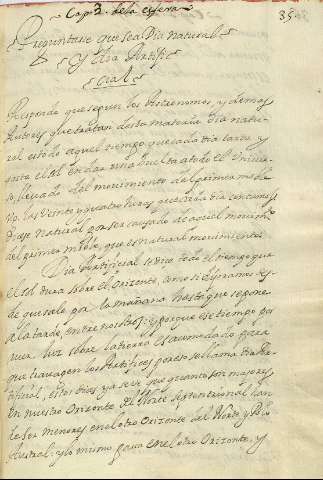 Cap. 3. de la esfera
35
Preguntase que sea Dia natural
Y Dia Artifi-
cial
Respondo que segun los Astronomos, y demas
Autores que tratan desta materia Dia natu-
ral es todo aquel tiempo que cada dia tarda y
gasta el Sol en dar una buelta a todo el Univer-
so, llevado del movimiento del primer mobi-
lo, las veinte y quatro horas que cada dia
dicese Natural por ser causado de aquel movimto
del primer mobil, que es natural movimiento.
Dia Artificial se dice todo el tiempo que
el Sol dura sobre el Orizonte, como si dijeramos des-
de que sale por la mañana hasta que se pone
a la tarde, entre nosotros: y porque ese tiempo que
luz sobre la tierra es acomodado para
que travagen los Artifices por eso se llama Dia Ar-
tificial, estos dias ya se ve que quanto son mayores
En nuestro Orizonte del Norte Septentrional han
de ser menores en el otro Orizonte del
Austral: y lo mismo para en el otro Orizonte, y